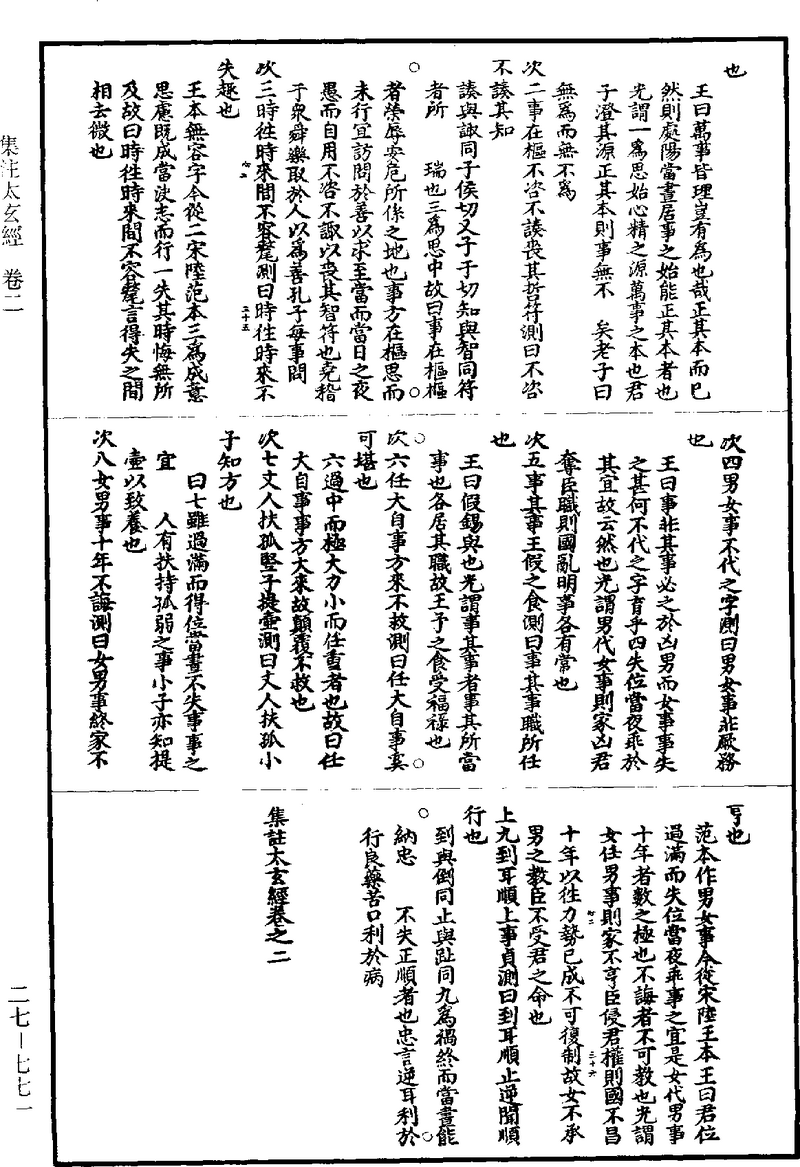 也
王曰萬事皆理豈有為也哉正其本而已
然則處陽當晝居事之始能正其本者也
光謂一為思始心精之源萬事之本也君
子澄其源正其本則事無不　矣老子曰
無為而無不為
次二事在樞不咨不諏喪其哲符測曰不咨
不諏其知
諏與諏同子侯切又子于切知與智同符
者所　瑞也三為思中故曰事在樞樞
者榮辱安危所係之地也事方在樞思而
未行宜訪問於善以求至當而當日之夜
愚而自用不咨不諏以喪其智符也堯稽
于衆舜樂取於人以為善孔子每事問
次三時往時來間不容氂測曰時往時來不
失趣也
王本無容字今從二宋陸范本三為成意
思慮既成當決志而行一失其時悔無所
及故曰時往時來間不容氂言得失之間
相去微也
次四男女事不代之字測曰男女事非厥務
也
王曰事非其事必之於凶男而女事事失
之甚何不代之字育乎四失位當夜乖於
其宜故云然也光謂男代女事則家凶君
奪臣職則國亂明事各有常也
次五事其事王假之食測曰事其事職所任
也
王曰假錫與也光謂事其事者事其所當
事也各居其職故王予之食受福祿也
次六任大自事方來不救測曰任大自事奚
可堪也
六過中而極大力小而任重者也故曰任
大自事事方大來故顛覆不救也
次七丈人扶孤豎子提壺測曰丈人扶孤小
子知方也
曰七雖過滿而得位當晝不失事事之
宜　人有扶持孤弱之事小子亦知提
壺以致養也
次八女男事十年不誨測曰女男事終家不
亨也
范本作男女事今從宋陸王本王曰君位
過滿而失位當夜乖事之宜是女代男事
十年者數之極也不誨者不可教也光謂
女任男事則家不亨臣侵君權則國不昌
十年以往力勢已成不可復制故女不承
男之教臣不受君之命也
上九到耳順上事貞測曰到耳順止逆聞順
行也
到與倒同止與趾同九為禍終而當晝能
納忠　不失正順者也忠言逆耳利於
行良藥苦口利於病
集註太玄經卷之二
集注太玄經　卷二
二七—七七一